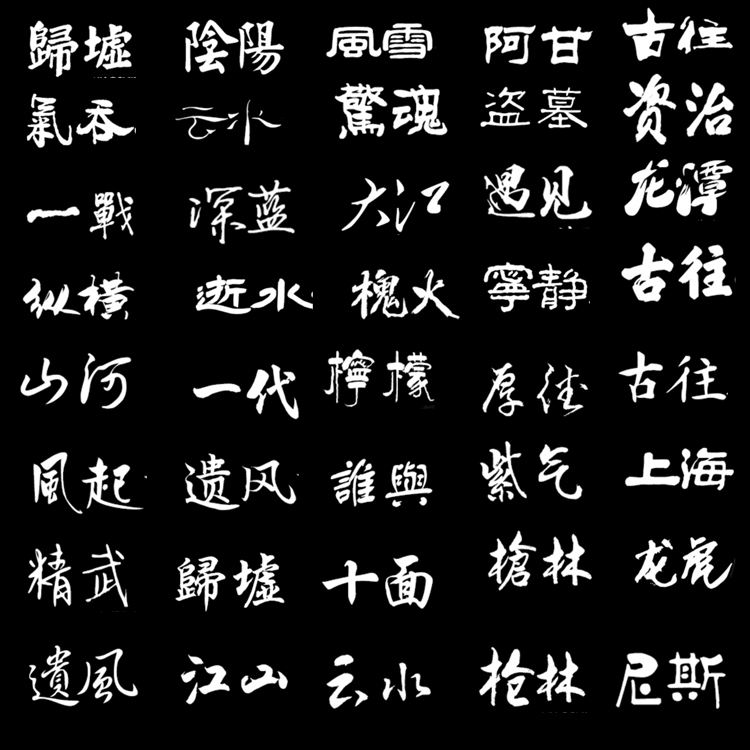 歸墟 陰陽 風雪 阿甘 古往
氣吞 云水 驚魂 盗墓 资治
一戰 深蓝 大江 遇见 龙潭
纵橫 逝水 槐火 寧静 古往
山河 一代 檸檬 厚德 古往
風起 遗风 誰與 紫气 上海
精武 歸墟 十面 槍林 龙虎
遺風 江山 云水 枪林 尼斯